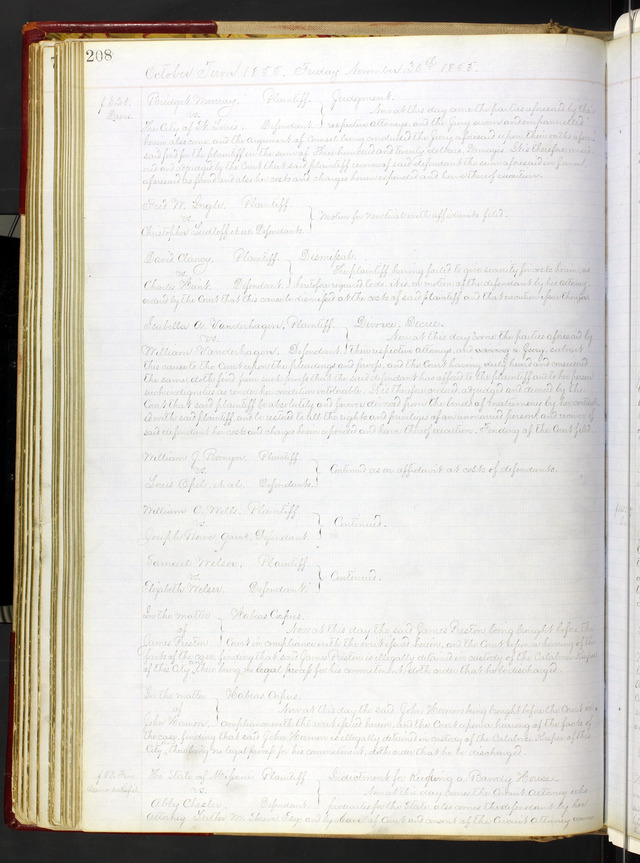 208
October Term 1855. Friday November 30th 1855.
Bridget Murray, Plaintiff Judgement.
vs. Now at this day come the parties aforesaid by their
The City of St. Louis. Defendant. respective attorneys, and the Jury sworn and empannelled
herein also come, and the argument of Counsel being concluded the Jury aforesaid upon their oaths afore-
said find for the plaintiff in the sum of Three hundred and twenty dollars Damages. It is therefore consid-
ered and adjudged by the Court that said plaintiff recover of said defendant the sum aforesaid in form
aforesaid as found and also her costs and charges herein expended and have thereof execution.
Fred W. Plaintiff
vs. Motion for new trial with affidavits filed.
Christopher et al. Defendants.
David Clancy, Plaintiff Dismissal.
vs. The plaintiff having failed to give security for costs herein, as
Charles Hunt. Defendant. heretofore required to do. It is on motion of the defendant by his attorney
ordered by the Court that this cause be dismissed at the costs of said plaintiff and that execution issue therefor
Isabella A. Vanderhagen, Plaintiff Divorce; Decree.
vs. Now at this day come the parties aforesaid by
William Vanderhagen, Defendant. their respective attorneys, and waiving a Jury, submit
this cause to the Court upon the pleadings and proofs, and the Court having duly heard and considered
the same, doth find from such proofs that the said defendant has offered to the plaintiff and to her person
such indignities as render her condition intolerable. It is therefore considered adjudged and decreed by the
Court that said plaintiff be absolutely and forever divorced from the bonds of matrimony by her contracted
with said plaintiff and be restored to all the rights and privileges of an unmarried person, and recover of
said defendant her costs and charges herein expended and have thereof execution. Finding of the Court filed.
William J. Plaintiff
vs. Continued as on affidavit at costs of defendants.
Louis et al. Defendants.
William C. Wells, Plaintiff
vs. Continued.
Joseph Defendant
Samuel Welser, Plaintiff
vs. Continued.
Elizabeth Welser. Defendant.
In the matter Habeas Corpus.
of Now at this day the said James Preston being brought before the
James Preston Court in compliance with the writ issued herein, and the Court upon a hearing of the
facts of the case, finding that said James Preston is illegally detained in custody of the Calaboose Keeper
of this City, there being no legal process for his commitment, doth order that he be discharged.
In the matter Habeas Corpus.
of Now at this day the said John being brought before the Court in
John compliance with the writ issued herein, and the Court upon a hearing of the facts of
the case, finding that said John is illegally detained in custody of the Calaboose Keeper of this
City, there being no legal process for his commitment, doth order that he be discharged.
The State of Missouri Plaintiff Indictment for Keeping a Bawdy House
vs. Now at this day come the Circuit Attorney who
Abby Chester. Defendant. prosecutes for the State also comes the defendant by her
Attorney Esqr. and by leave of Court and consent of the Circuit Attorney